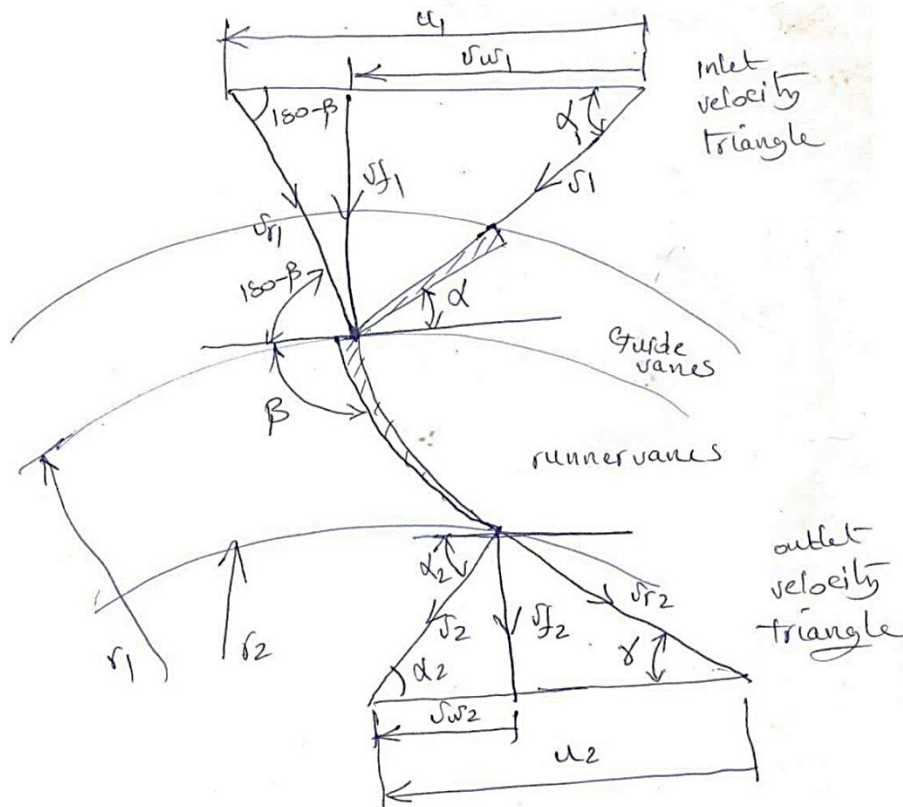 u₁
vw₁
inlet
velocity
triangle
180-β
α₁
vf₁
v₁
vr₁
180-β
α
Guide
vanes
β
runner vanes
outlet
velocity
triangle
α₂
vr₂
v₂
vf₂
r₁
r₂
α₂
γ
vw₂
u₂